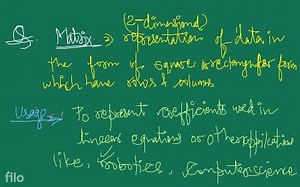 Q. Matrix ⇒ (2-dimensional) representation of data in
the form of square or rectangular form
which have rows & columns
Usage ⇒ To represent coefficients used in
linear equations or other application
like, robotics, computer science
filo